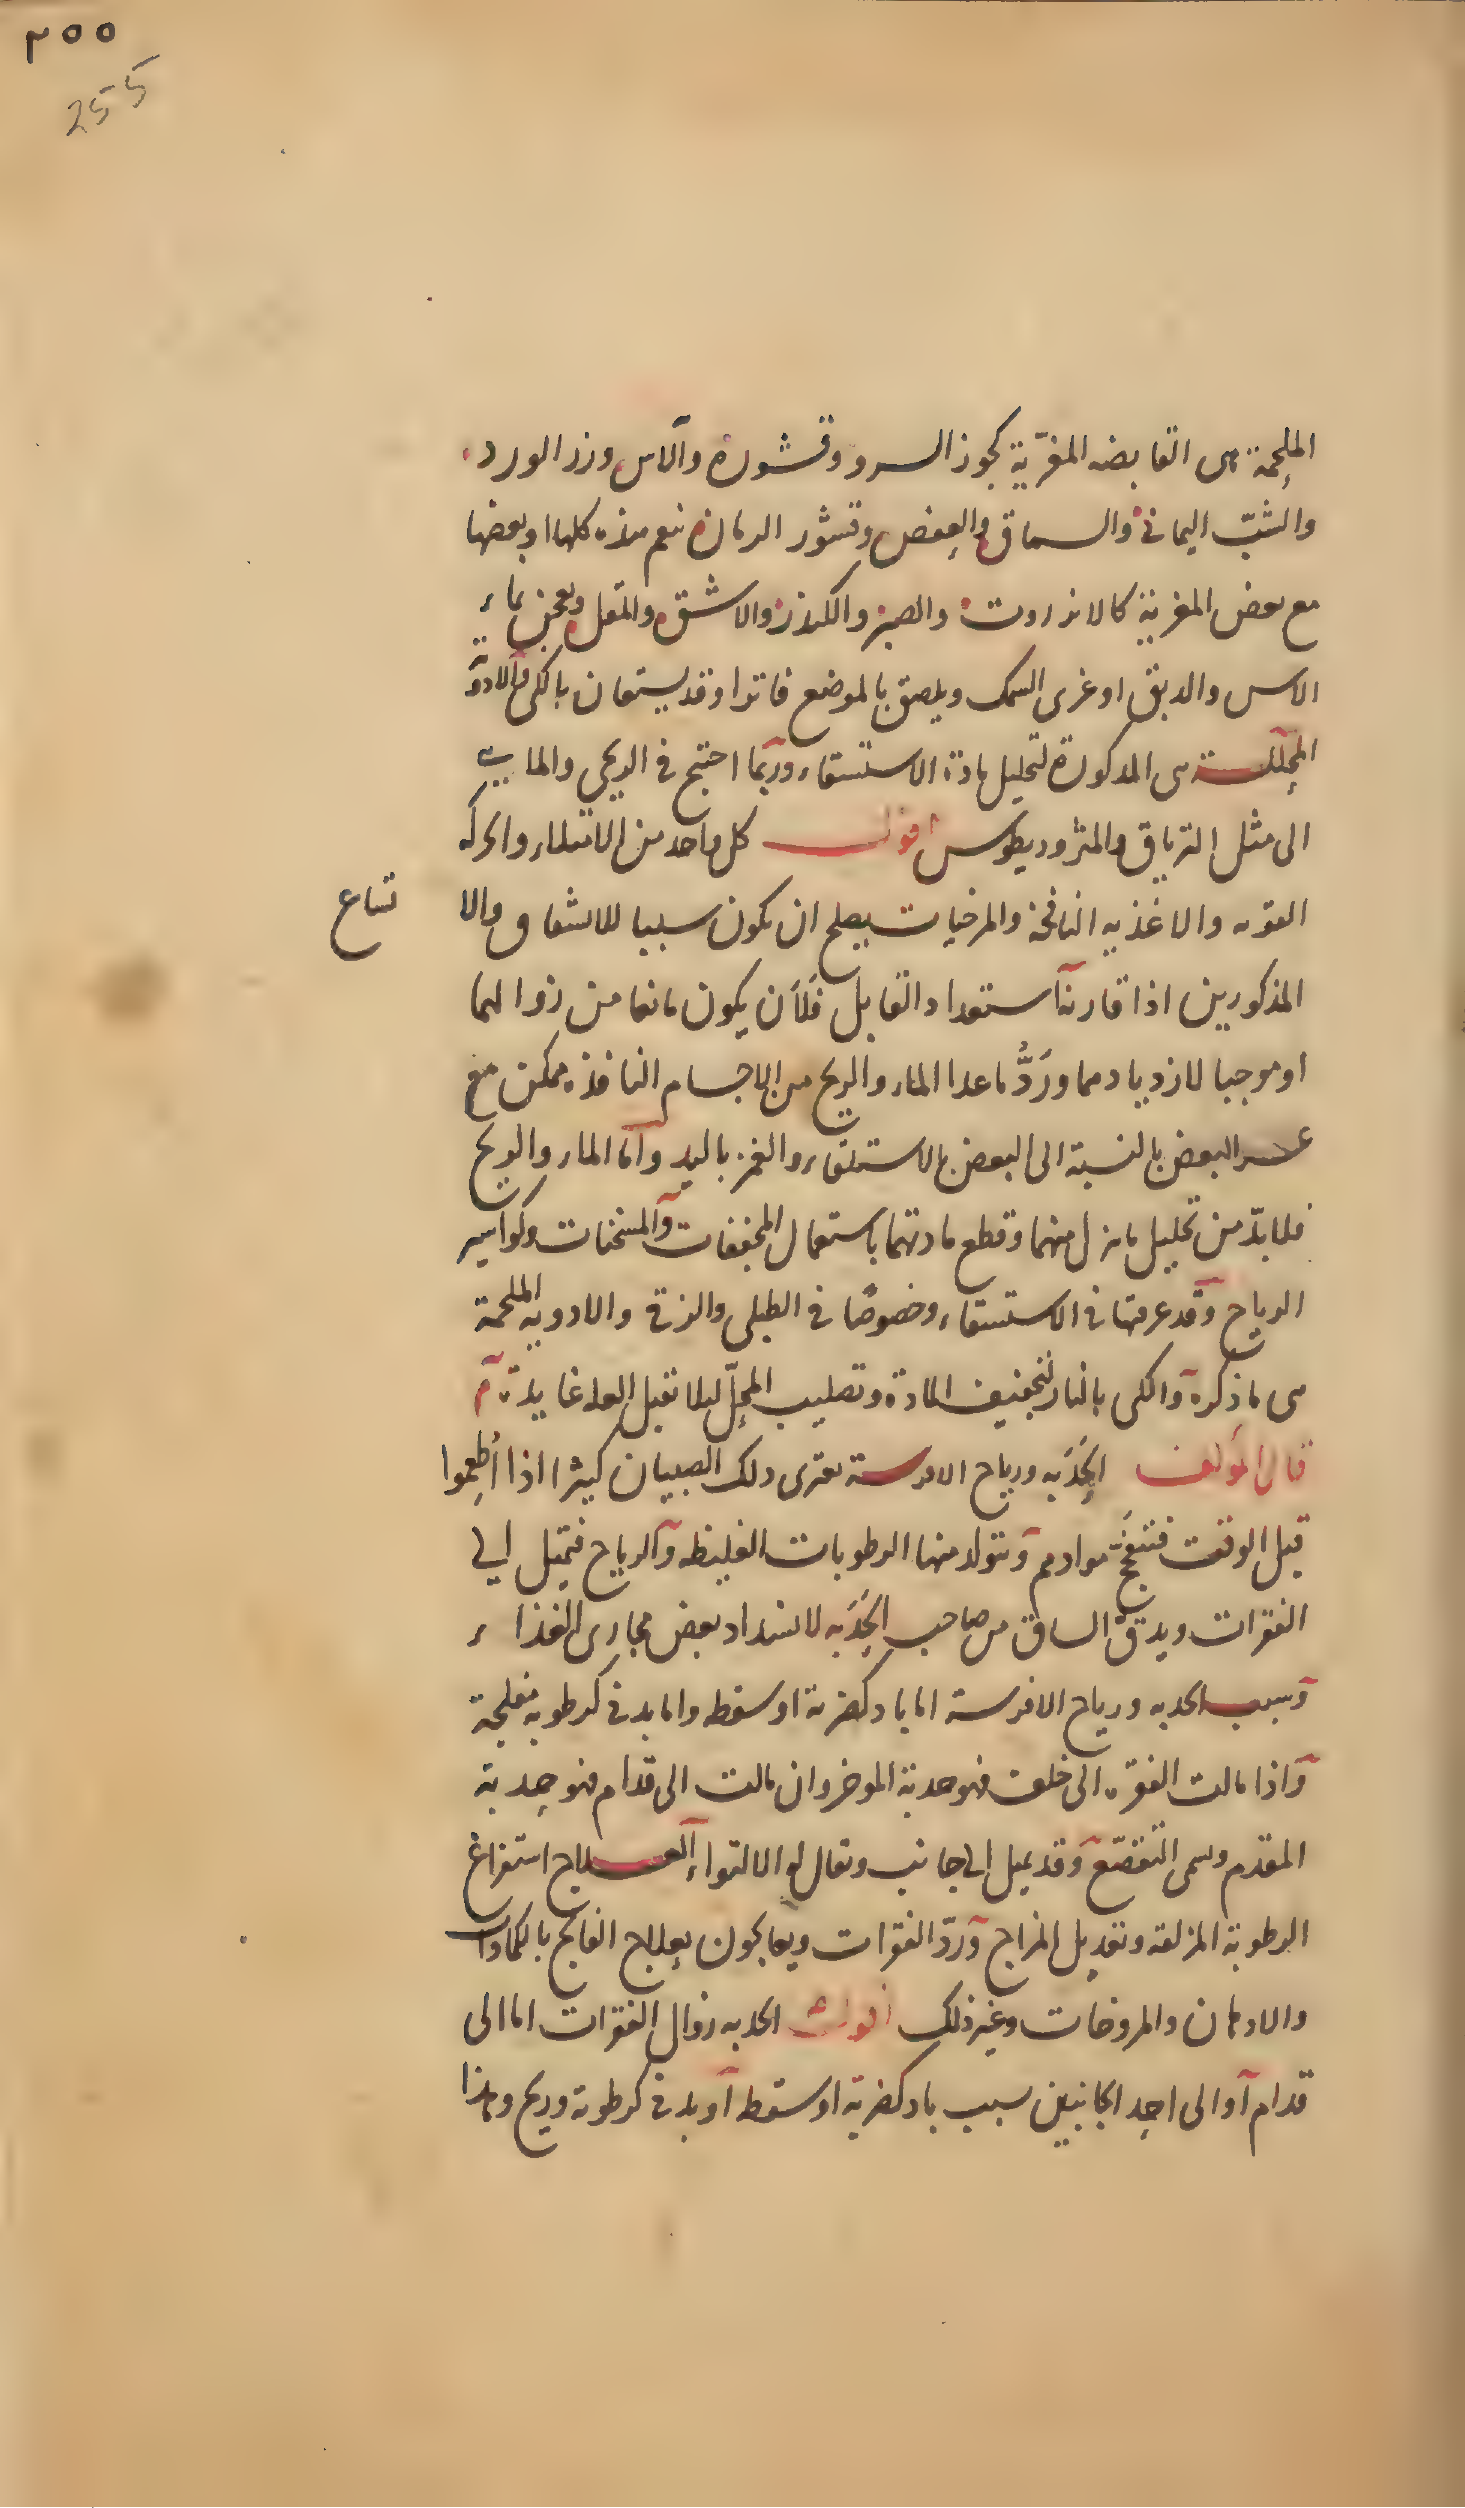 ٢٥٥
255
الملحمة هى القابضه المغرّية كجوز السرو وقشوره والآس وزر الورد
والشبّ اليمانى والسماق والعفص وقشور الرمان ينعم هذه كلها او بعضها
مع بعض المغرية كالانزروت والصبر والكندر والاشق والمقل ويعجن بماء
الاس والدبق او غرى السمك ويلصق بالموضع فاترا وقد يستعان بالكى والادوية
المحللة هى المذكورة لتحليل مادة الاستسقاء وربما احتيج فى الريحى والمايى
الى مثل الترياق والمثروديطوس اقول كل واحد من الامتلاء والحركه
القويه والاغذيه النافخة والمرخيات يصلح ان يكون سببا للانشقاق والا
تساع
المذكورين اذا قارنه استعداد القابل فلأن يكون مانعا من زوالهما
او موجبا لازديادهما ورَدُّ ما عدا الماء والريح من الاجسام النافذه ممكن مع
عسر البعض بالنسبة الى البعض بالاستلقاء والغمز باليد وأما الماء والريح
فلا بدّ من تحليل ما نزل منهما وقطع مادتهما باستعمال المجففات والمسخنات وكواسير
الرياح وقد عرفتها فى الاستسقاء وخصوصًا فى الطبلى والزقى والادويه الملحمة
هى ما ذكره والكى بالنار لتجفيف المادة وتصليب المحلّ ليلا تقبل
قال المؤلف الحَدَبه ورياح الافرسة تعترى ذلك الصبيان كثيرا اذا أُطعِموا
قبل الوقت فتنفجّ موادهم وتتولد منها الرطوبات الغليظه والرياح فتميل الى
الفقرات ويدقّ الساق من صاحب الحَدَبه لانسداد بعض مجارى الغذاء
وسبب الحدبه ورياح الافرسة اما باد كضربة او سقطه واما بدنى كرطوبه مفلجة
واذا مالت الفقره الى خلف فهو حدبة الموخر وان مالت الى قدام فهو حدبة
المقدم وسمى التقصّع وقد يميل الى جانب ويقال له الالتواء العلاج استفراغ
الرطوبة المزلقة وتعديل المزاج وردّ الفقرات ويعالجون بعلاج الفالج بالكمادات
والادهان والمروخات وغير ذلك اقول الحدبه زوال الفقرات اما الى
قدام أو الى احد الجانبين بسبب باد كضربة او سقطه أو بدنى كرطوبة وريح وهذا